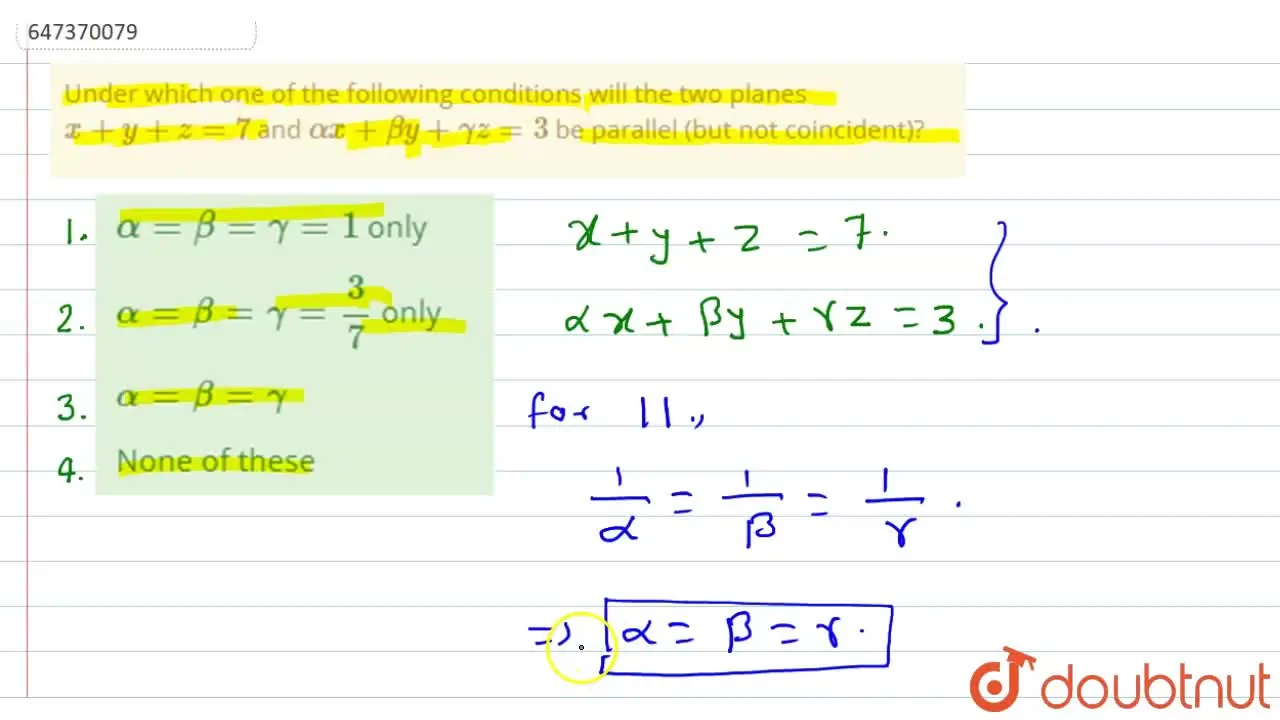 647370079
Under which one of the following conditions will the two planes
x + y + z = 7 and αx + βy + γz = 3 be parallel (but not coincident)?
1. α = β = γ = 1 only
2. α = β = γ = 3/7 only
3. α = β = γ
4. None of these
x + y + z = 7.
αx + βy + γz = 3.
for ||.,
1/α = 1/β = 1/γ.
=> α = β = γ.
doubtnut